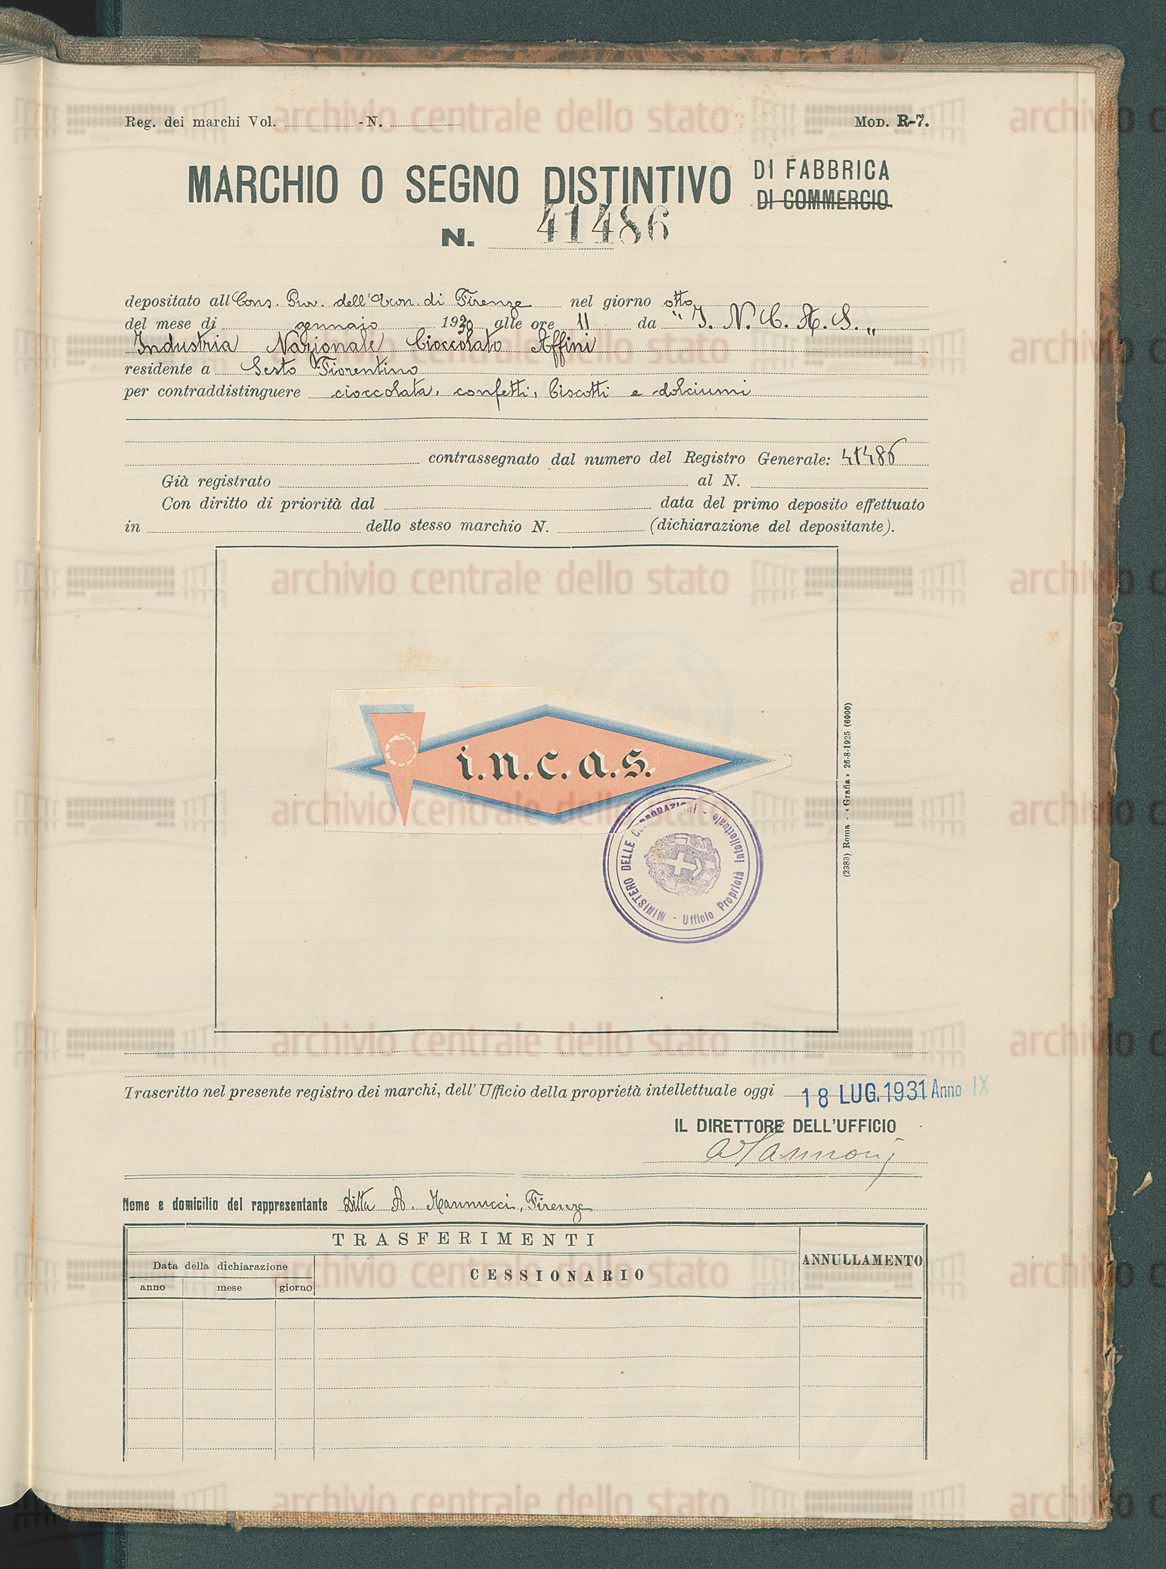 Reg. dei marchi Vol. - N. MOD. R-7.
MARCHIO O SEGNO DISTINTIVO DI FABBRICA
DI COMMERCIO
N. 41486
depositato all Cons. Prov. dell'Econ. di Firenze nel giorno otto
del mese di gennaio 1930 alle ore 11 da "I. N. C. A. S."
Industria Nazionale Cioccolato Affini
residente a Sesto Fiorentino
per contraddistinguere cioccolata, confetti, biscotti e dolciumi
contrassegnato dal numero del Registro Generale: 41486
Già registrato al N.
Con diritto di priorità dal data del primo deposito effettuato
in dello stesso marchio N. (dichiarazione del depositante).
i.n.c.a.s.
MINISTERO DELLE CORPORAZIONI - Ufficio Proprietà Intellettuale -
(2383) Roma - «Grafia» 26-8-1925 (6000)
Trascritto nel presente registro dei marchi, dell'Ufficio della proprietà intellettuale oggi 18 LUG. 1931 Anno IX
IL DIRETTORE DELL'UFFICIO
Nome e domicilio del rappresentante Ditta A. Mannucci, Firenze
TRASFERIMENTI
ANNULLAMENTO
Data della dichiarazione
CESSIONARIO
anno mese giorno
archivio centrale dello stato